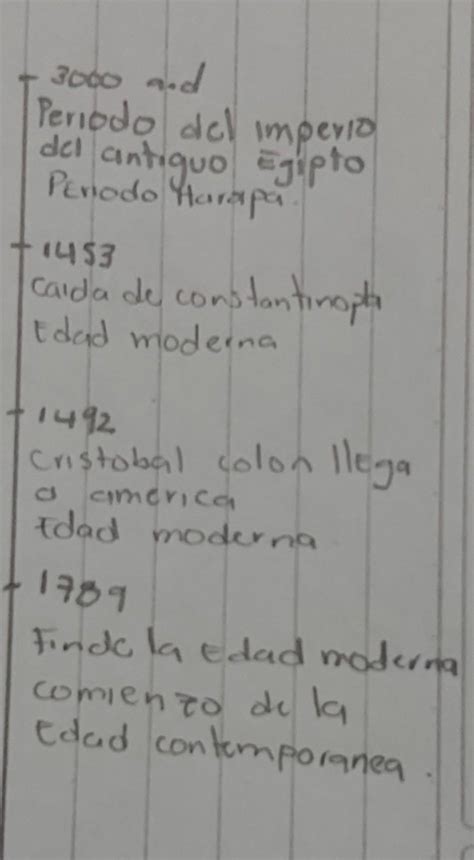 3000 a.d
Periodo del imperio
del antiguo Egipto
Periodo Harapa.
1453
caida de constantinopla
Edad moderna
1492
cristobal colon llega
a america
Edad moderna
1789
Fin de la edad moderna
comienzo de la
Edad contemporanea.